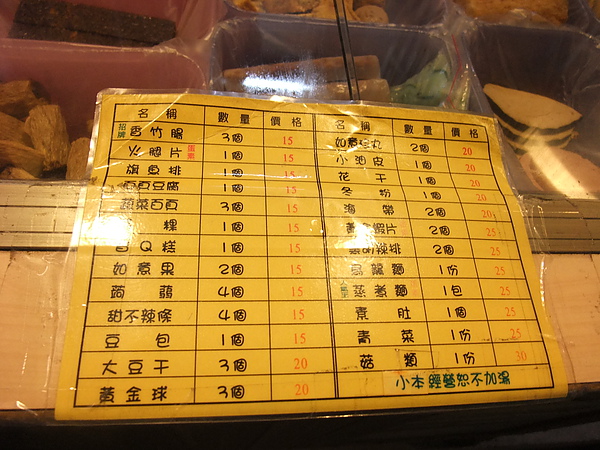 名稱 數量 價格
招牌 香竹腸 3個 15
火腿片 蛋素 1個 15
旗魚排 1個 15
百頁豆腐 1個 15
蔬菜百頁 3個 15
粿 1個 15
香Q糕 1個 15
如意果 2個 15
蒟蒻 4個 15
甜不辣條 4個 15
豆包 1個 15
大豆干 3個 20
黃金球 3個 20
名稱 數量 價格
如意丸 2個 20
小油皮 1個 20
花干 1個 20
冬粉 1個 20
海帶 2個 20
黃金蝦片 2個 25
辣排 2個 25
烏龍麵 1份 25
蒸煮麵 1包 25
素肚 1個 25
青菜 1份 25
菇類 1份 30
小本經營恕不加湯